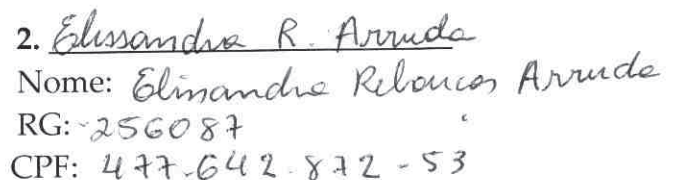 2. Elissandra R. Arruda
Nome: Elissandra Rebouças Arruda
RG: 256087
CPF: 477.642.872-53